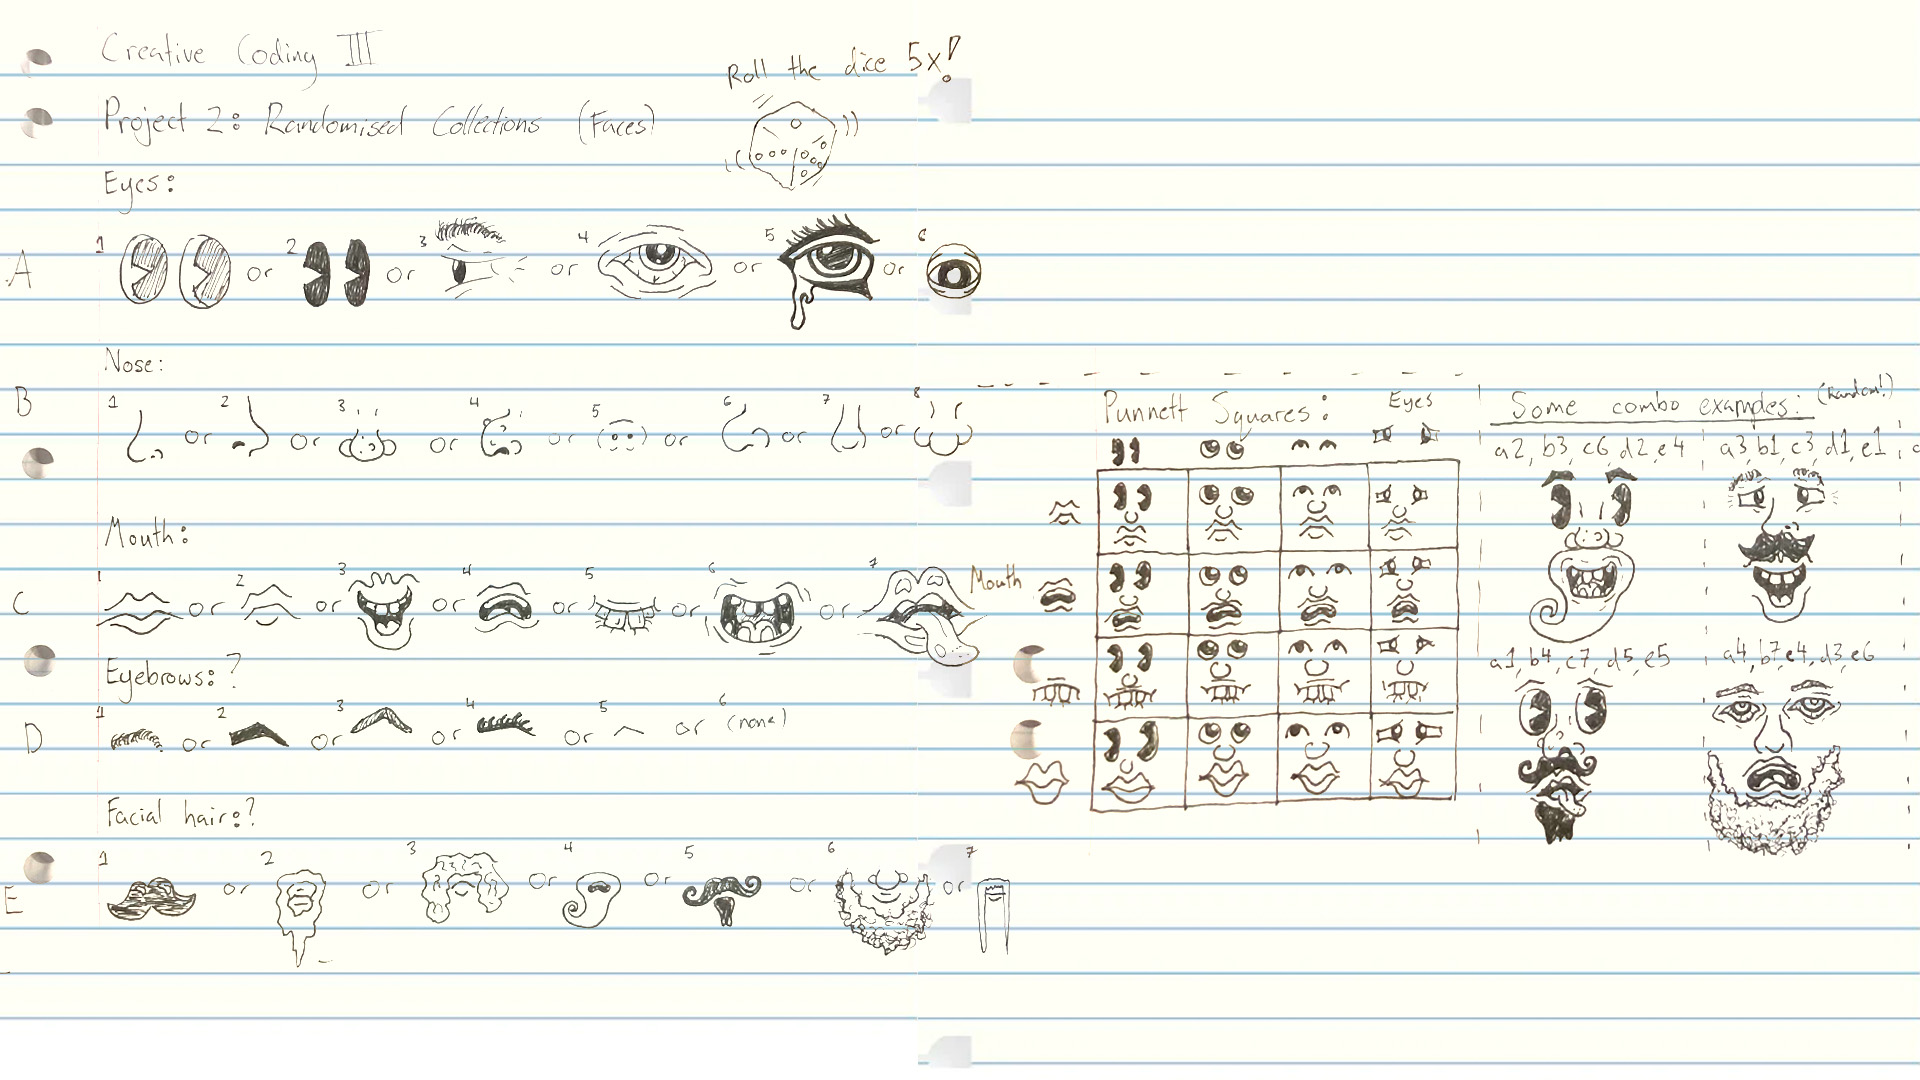 Creative Coding III
Roll the dice 5x!
Project 2: Randomised Collections (Faces)
Eyes:
A 1 or 2 or 3 or 4 or 5 or 6
Nose:
B 1 or 2 or 3 or 4 or 5 or 6 or 7 or 8
Mouth:
C 1 or 2 or 3 or 4 or 5 or 6 or 7
Eyebrows:?
D 1 or 2 or 3 or 4 or 5 or 6 (none)
Facial hair:?
E 1 or 2 or 3 or 4 or 5 or 6 or 7
Punnett Squares: Eyes
Mouth
Some combo examples: (Random!)
a2, b3, c6, d2, e4
a3, b1, c3, d1, e1
a1, b4, c7, d5, e5
a4, b7, e4, d3, e6